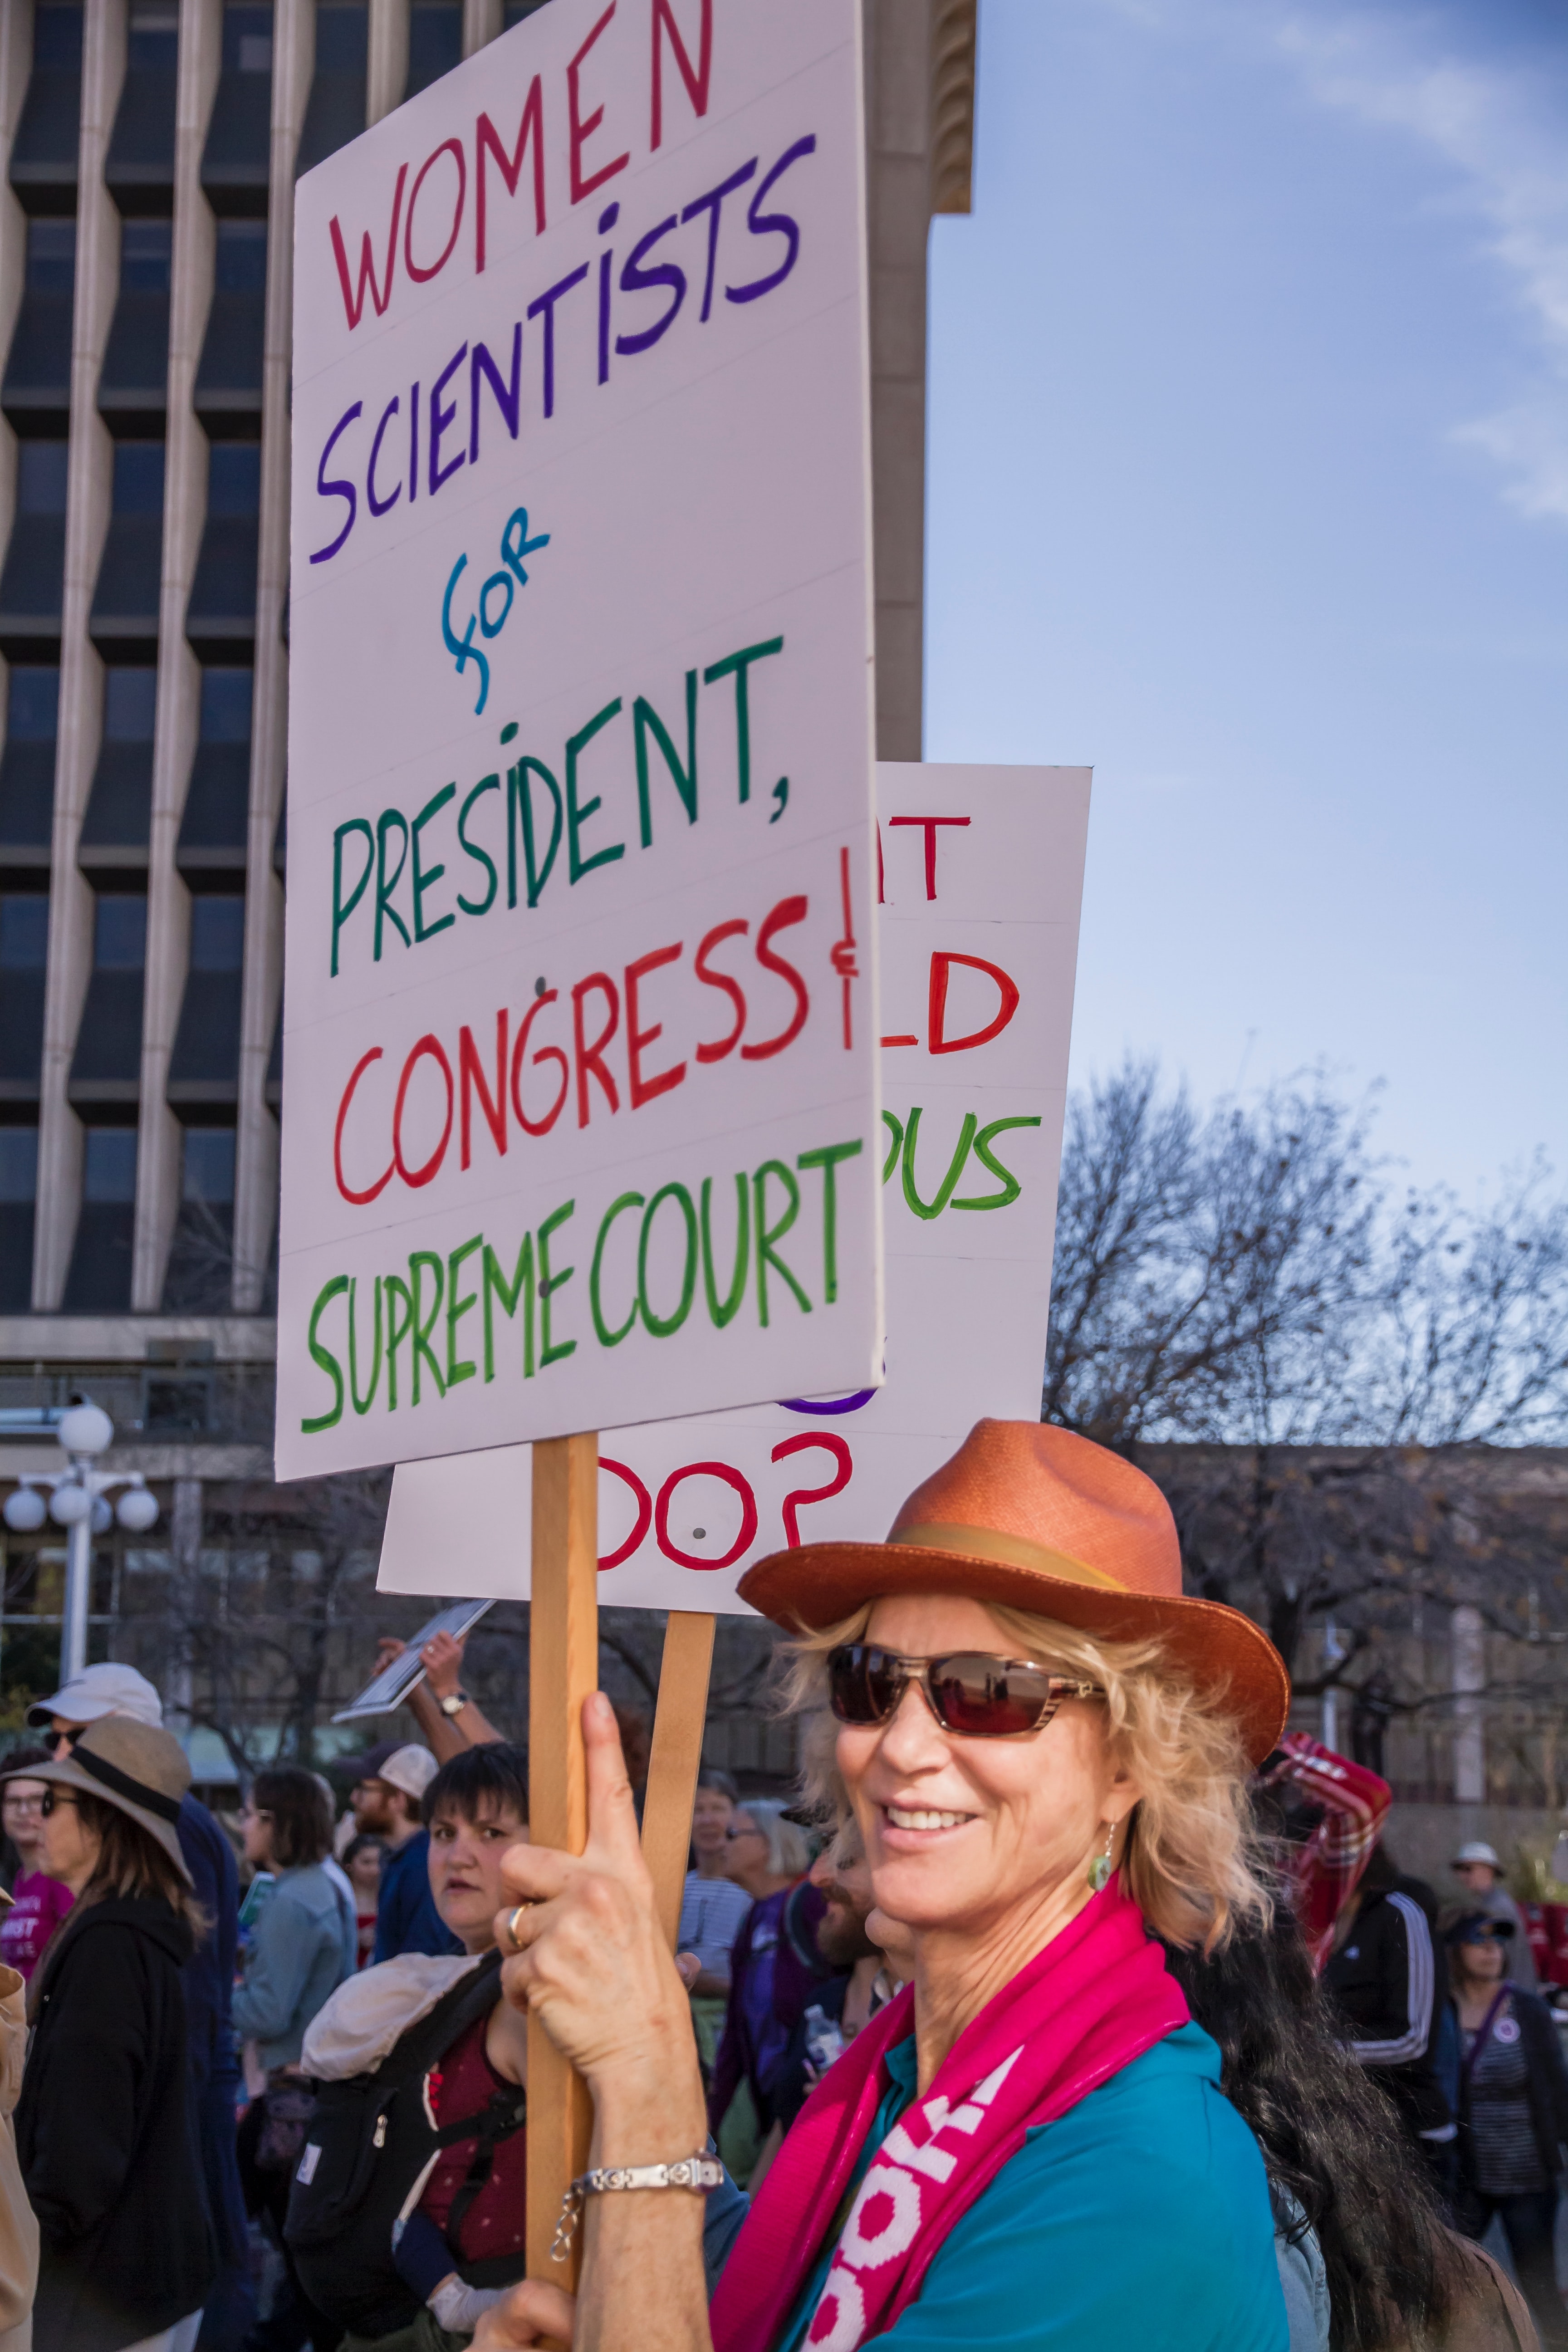 WOMEN
SCIENTISTS
for
PRESiDENT,
CONGRESS &
SUPREME COURT
DO?